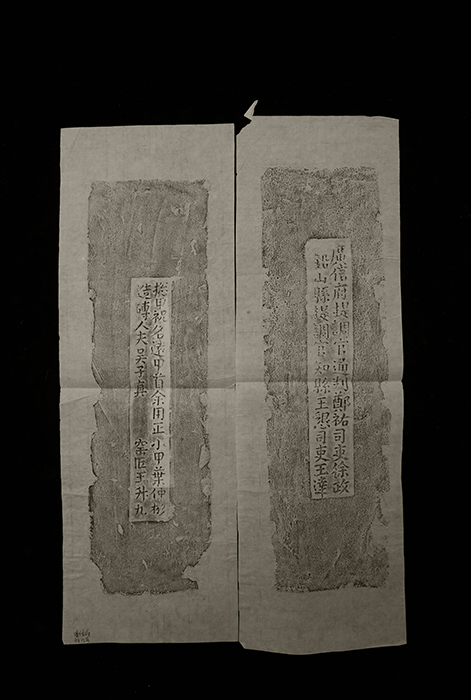 廣信府提調官通判鄭祐司吏徐政
鉛山縣提調官知縣王懇司吏王達
捴甲祝名逵甲首余用正小甲葉仲彬
造磚人夫吳子真 窑匠王升九